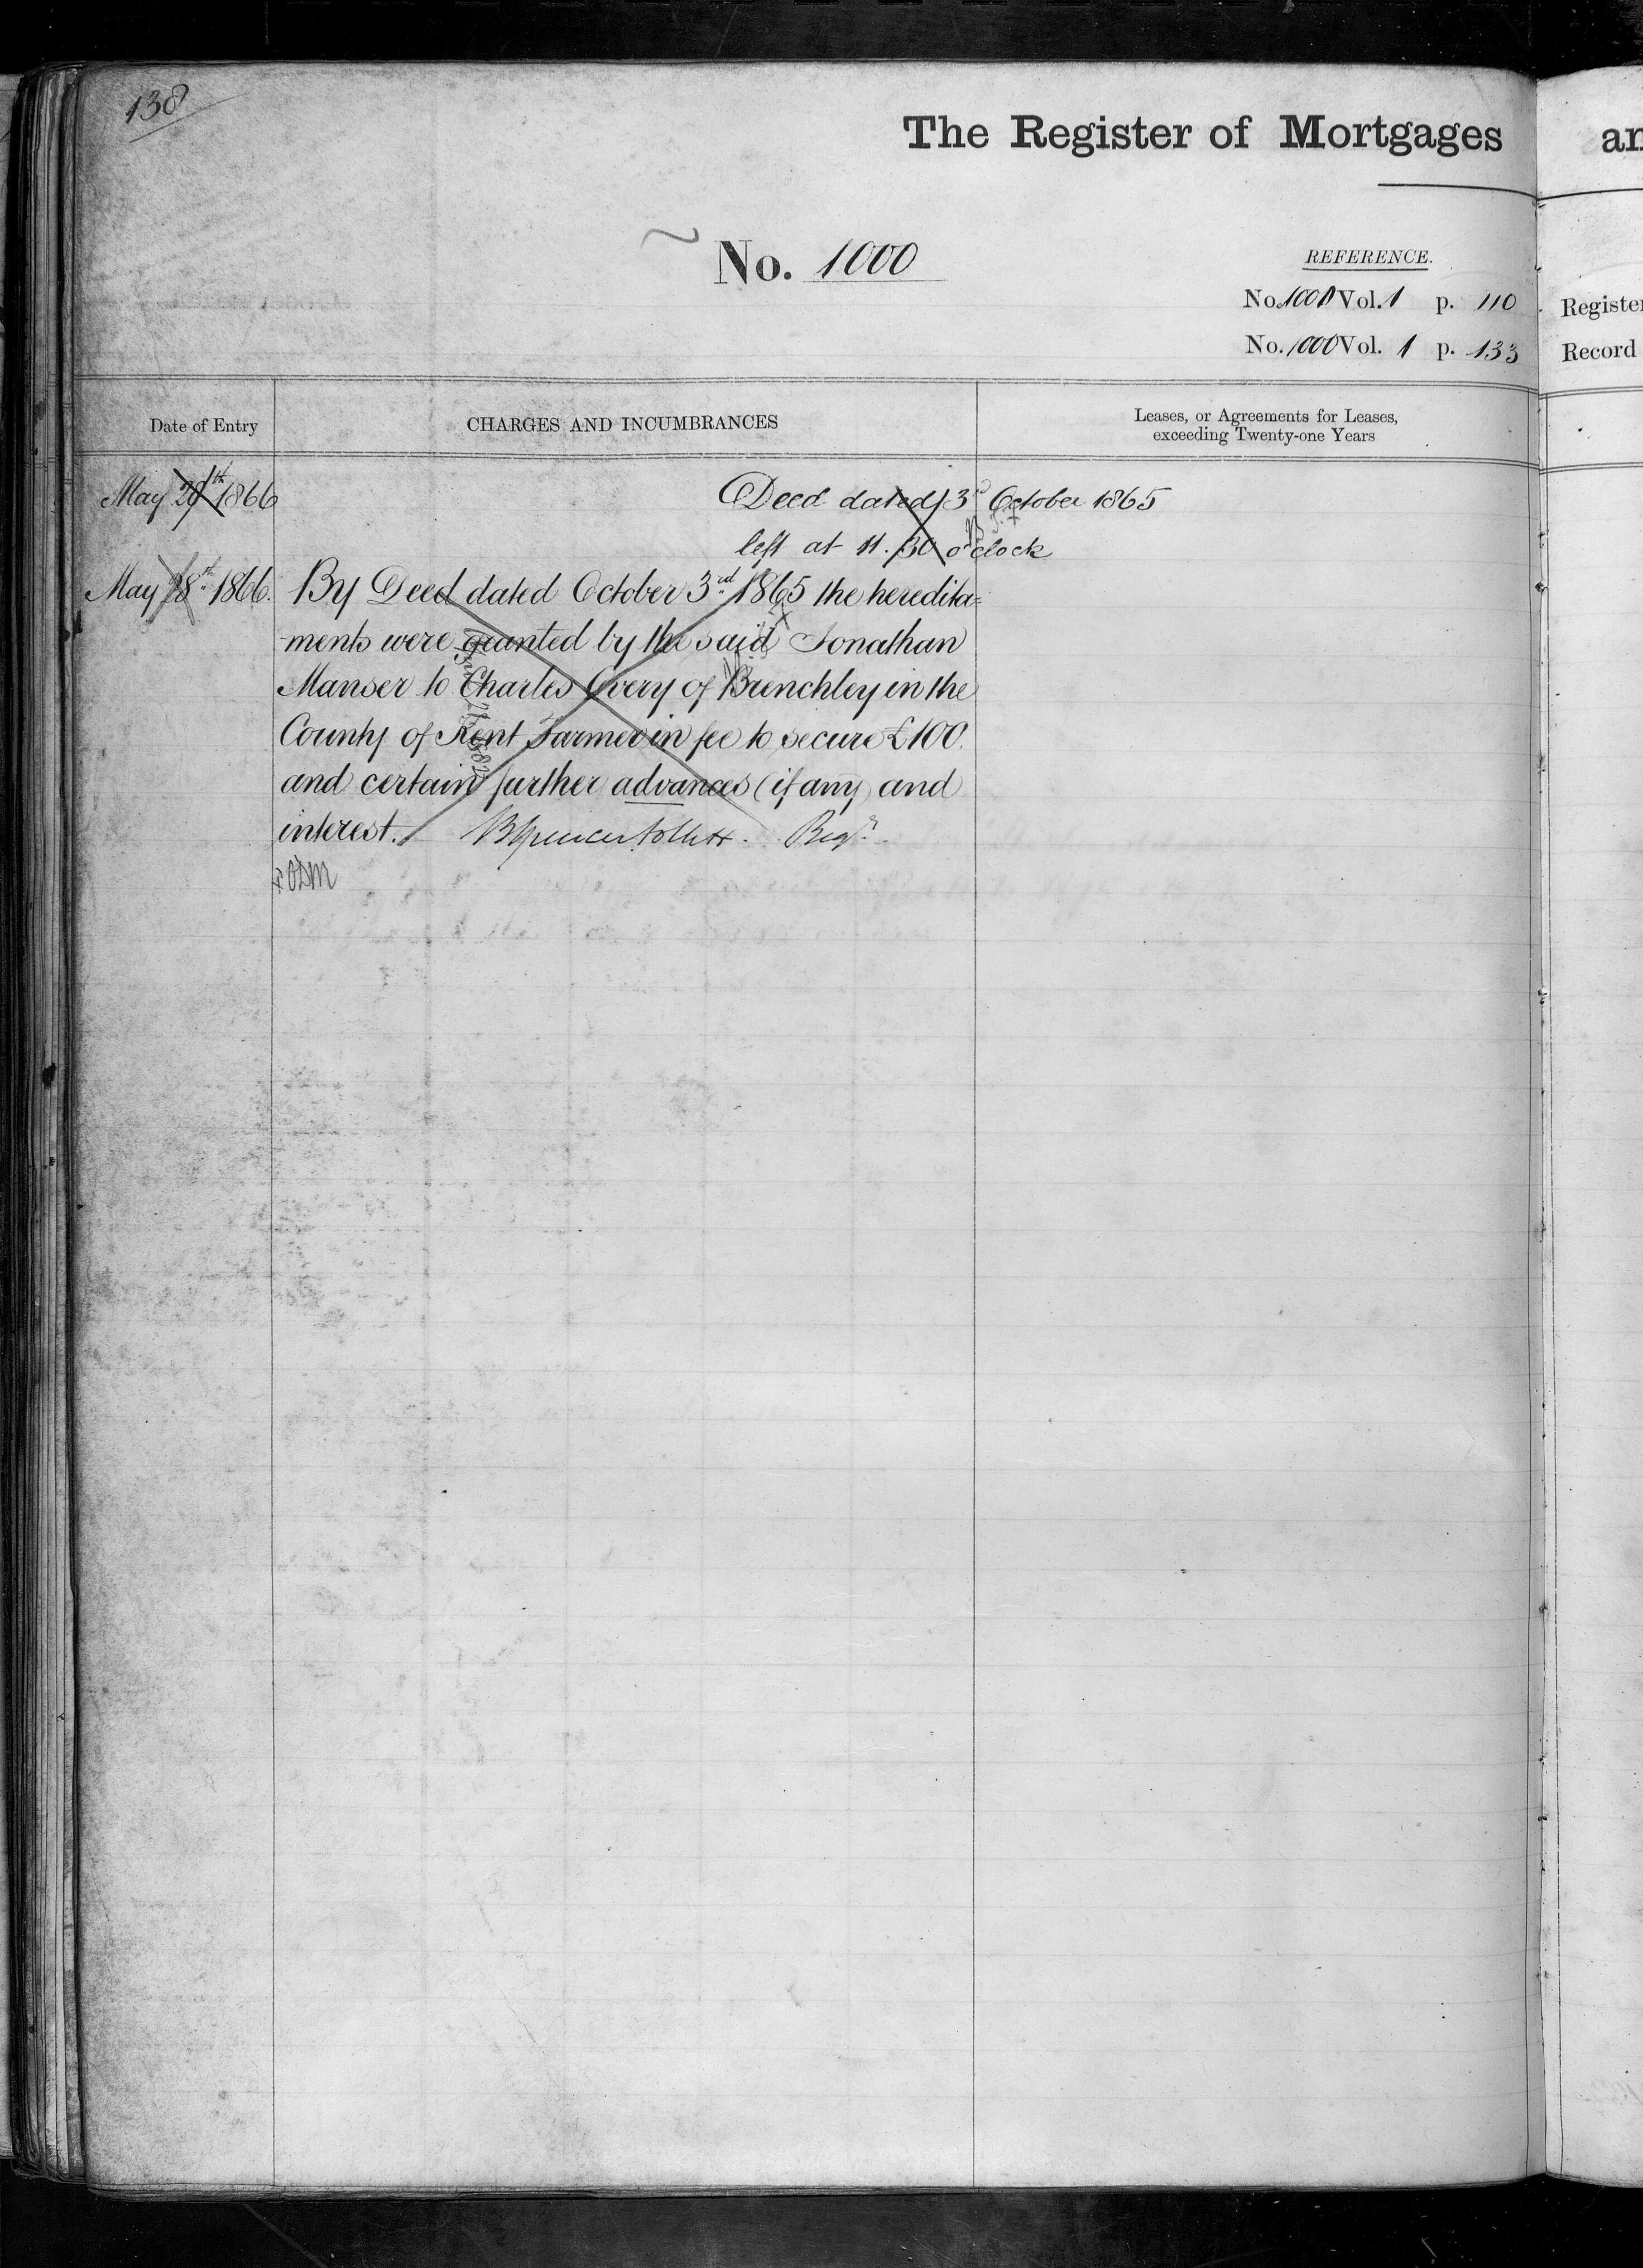 138
The Register of Mortgages
an
No. 1000
REFERENCE.
No. 1000 Vol. 1 p. 110
Register
No. 1000 Vol. 1 p. 133
Record
Date of Entry
CHARGES AND INCUMBRANCES
Leases, or Agreements for Leases,
exceeding Twenty-one Years
May 1866
Deed dated 3d October 1865
left at 11.30 o'clock
May 28th 1866.
By Deed dated October 3rd 1865 the heredita=
-ments were granted by the said Jonathan
Manser to Charles Overy of Brenchley in the
County of Kent Farmer in fee to secure £100.
and certain further advances (if any) and
interest. Regr